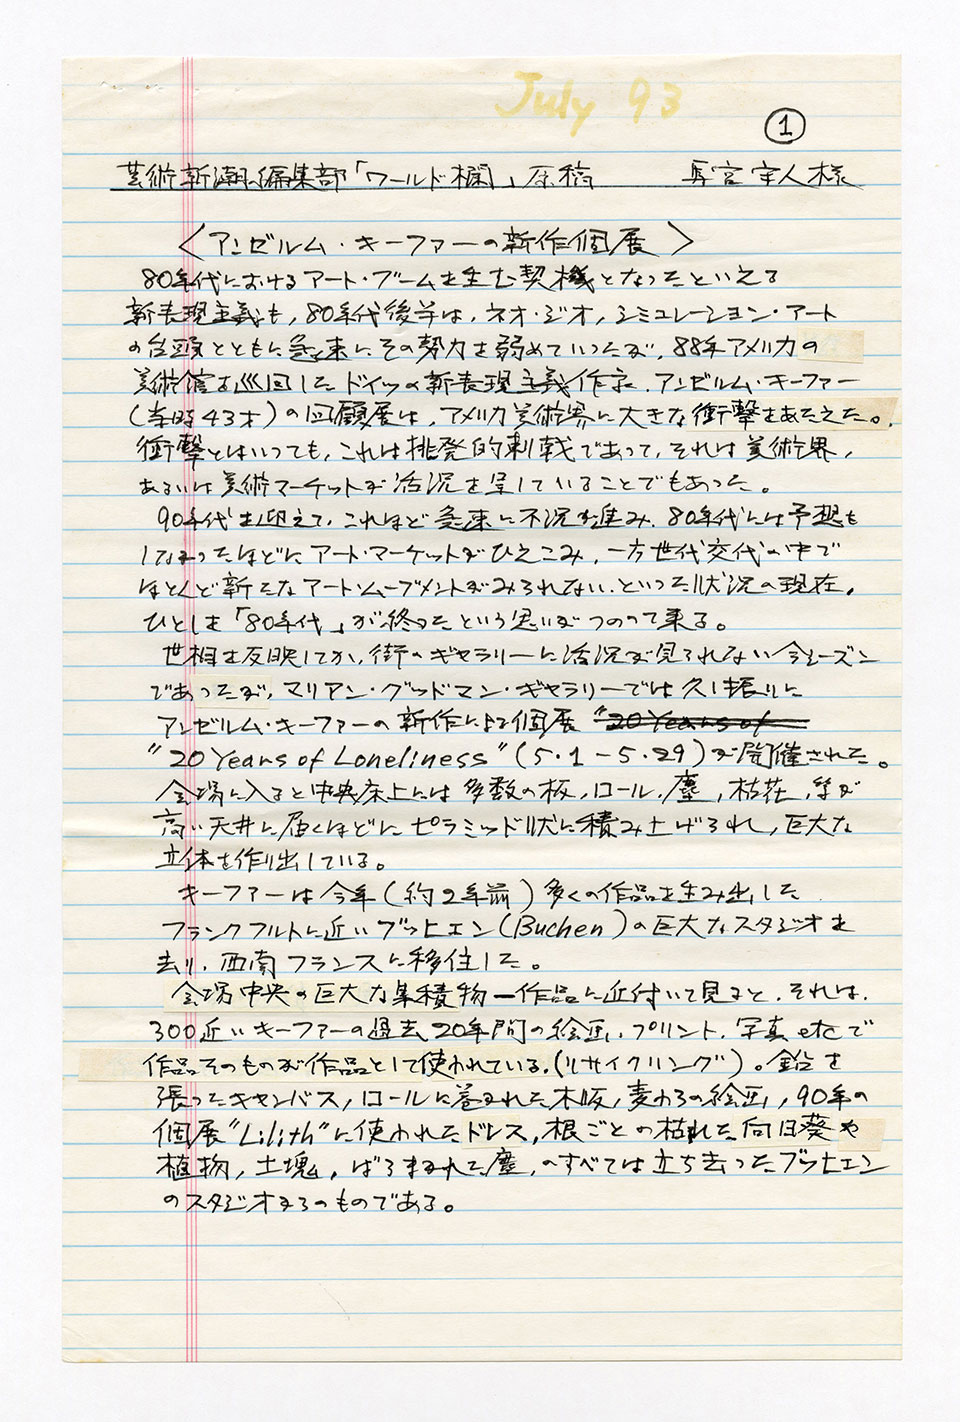 July 93
1
芸術新潮編集部「ワールド欄」原稿 宇人様
〈アンゼルム・キーファーの新作個展〉
80年代におけるアート・ブームを生む契機となったといえる
新表現主義も，80年代後半は，ネオ・ジオ，シミュレーション・アート
の台頭とともに急速にその勢力を弱めていったが，88年アメリカの
美術館を巡回したドイツの新表現主義作家，アンゼルム・キーファー
（当時43才）の回顧展は，アメリカ美術界に大きな衝撃をあたえた。
衝撃とはいっても，これは挑発的刺戟であって，それは美術界，
あるいは美術マーケットが活況を呈していることでもあった。
90年代を迎えて，これほど急速に不況が進み，80年代には予想も
しなかったほどにアート・マーケットがひえこみ，一方世代交代の中で
ほとんど新たなアート・ムーブメントがみられない，といった状況の現在，
ひとしを「80年代」が終ったという思いがつのって来る。
世相を反映してか，街のギャラリーに活況が見られない今シーズン
であったが，マリアン・グッドマン・ギャラリーでは久し振りに
アンゼルム・キーファーの新作による個展 "20 Years of
"20 Years of Loneliness"（5・1－5・29）が開催された。
会場に入ると中央床上には多数の板，ロール，塵，枯花，等が
高い天井に届くほどにピラミッド状に積み上げられ，巨大な
立体を作り出している。
キーファーは今年（約2年前）多くの作品を生み出した
フランクフルトに近いブッヒェン（Buchen）の巨大なスタジオを
去り，西南フランスに移住した。
会場中央の巨大な集積物－作品に近付いて見ると，それは，
300近いキーファーの過去20年間の絵画，プリント，写真etcで
作品そのものが作品として使われている。（リサイクリング）。鉛を
張ったキャンバス，ロールに巻かれた木版，麦わらの絵画，90年の
個展"Lilith"に使われたドレス，根ごとの枯れた向日葵や
植物，土塊，ばらまかれた塵，のすべては立ち去ったブッヒェン
のスタジオからのものである。